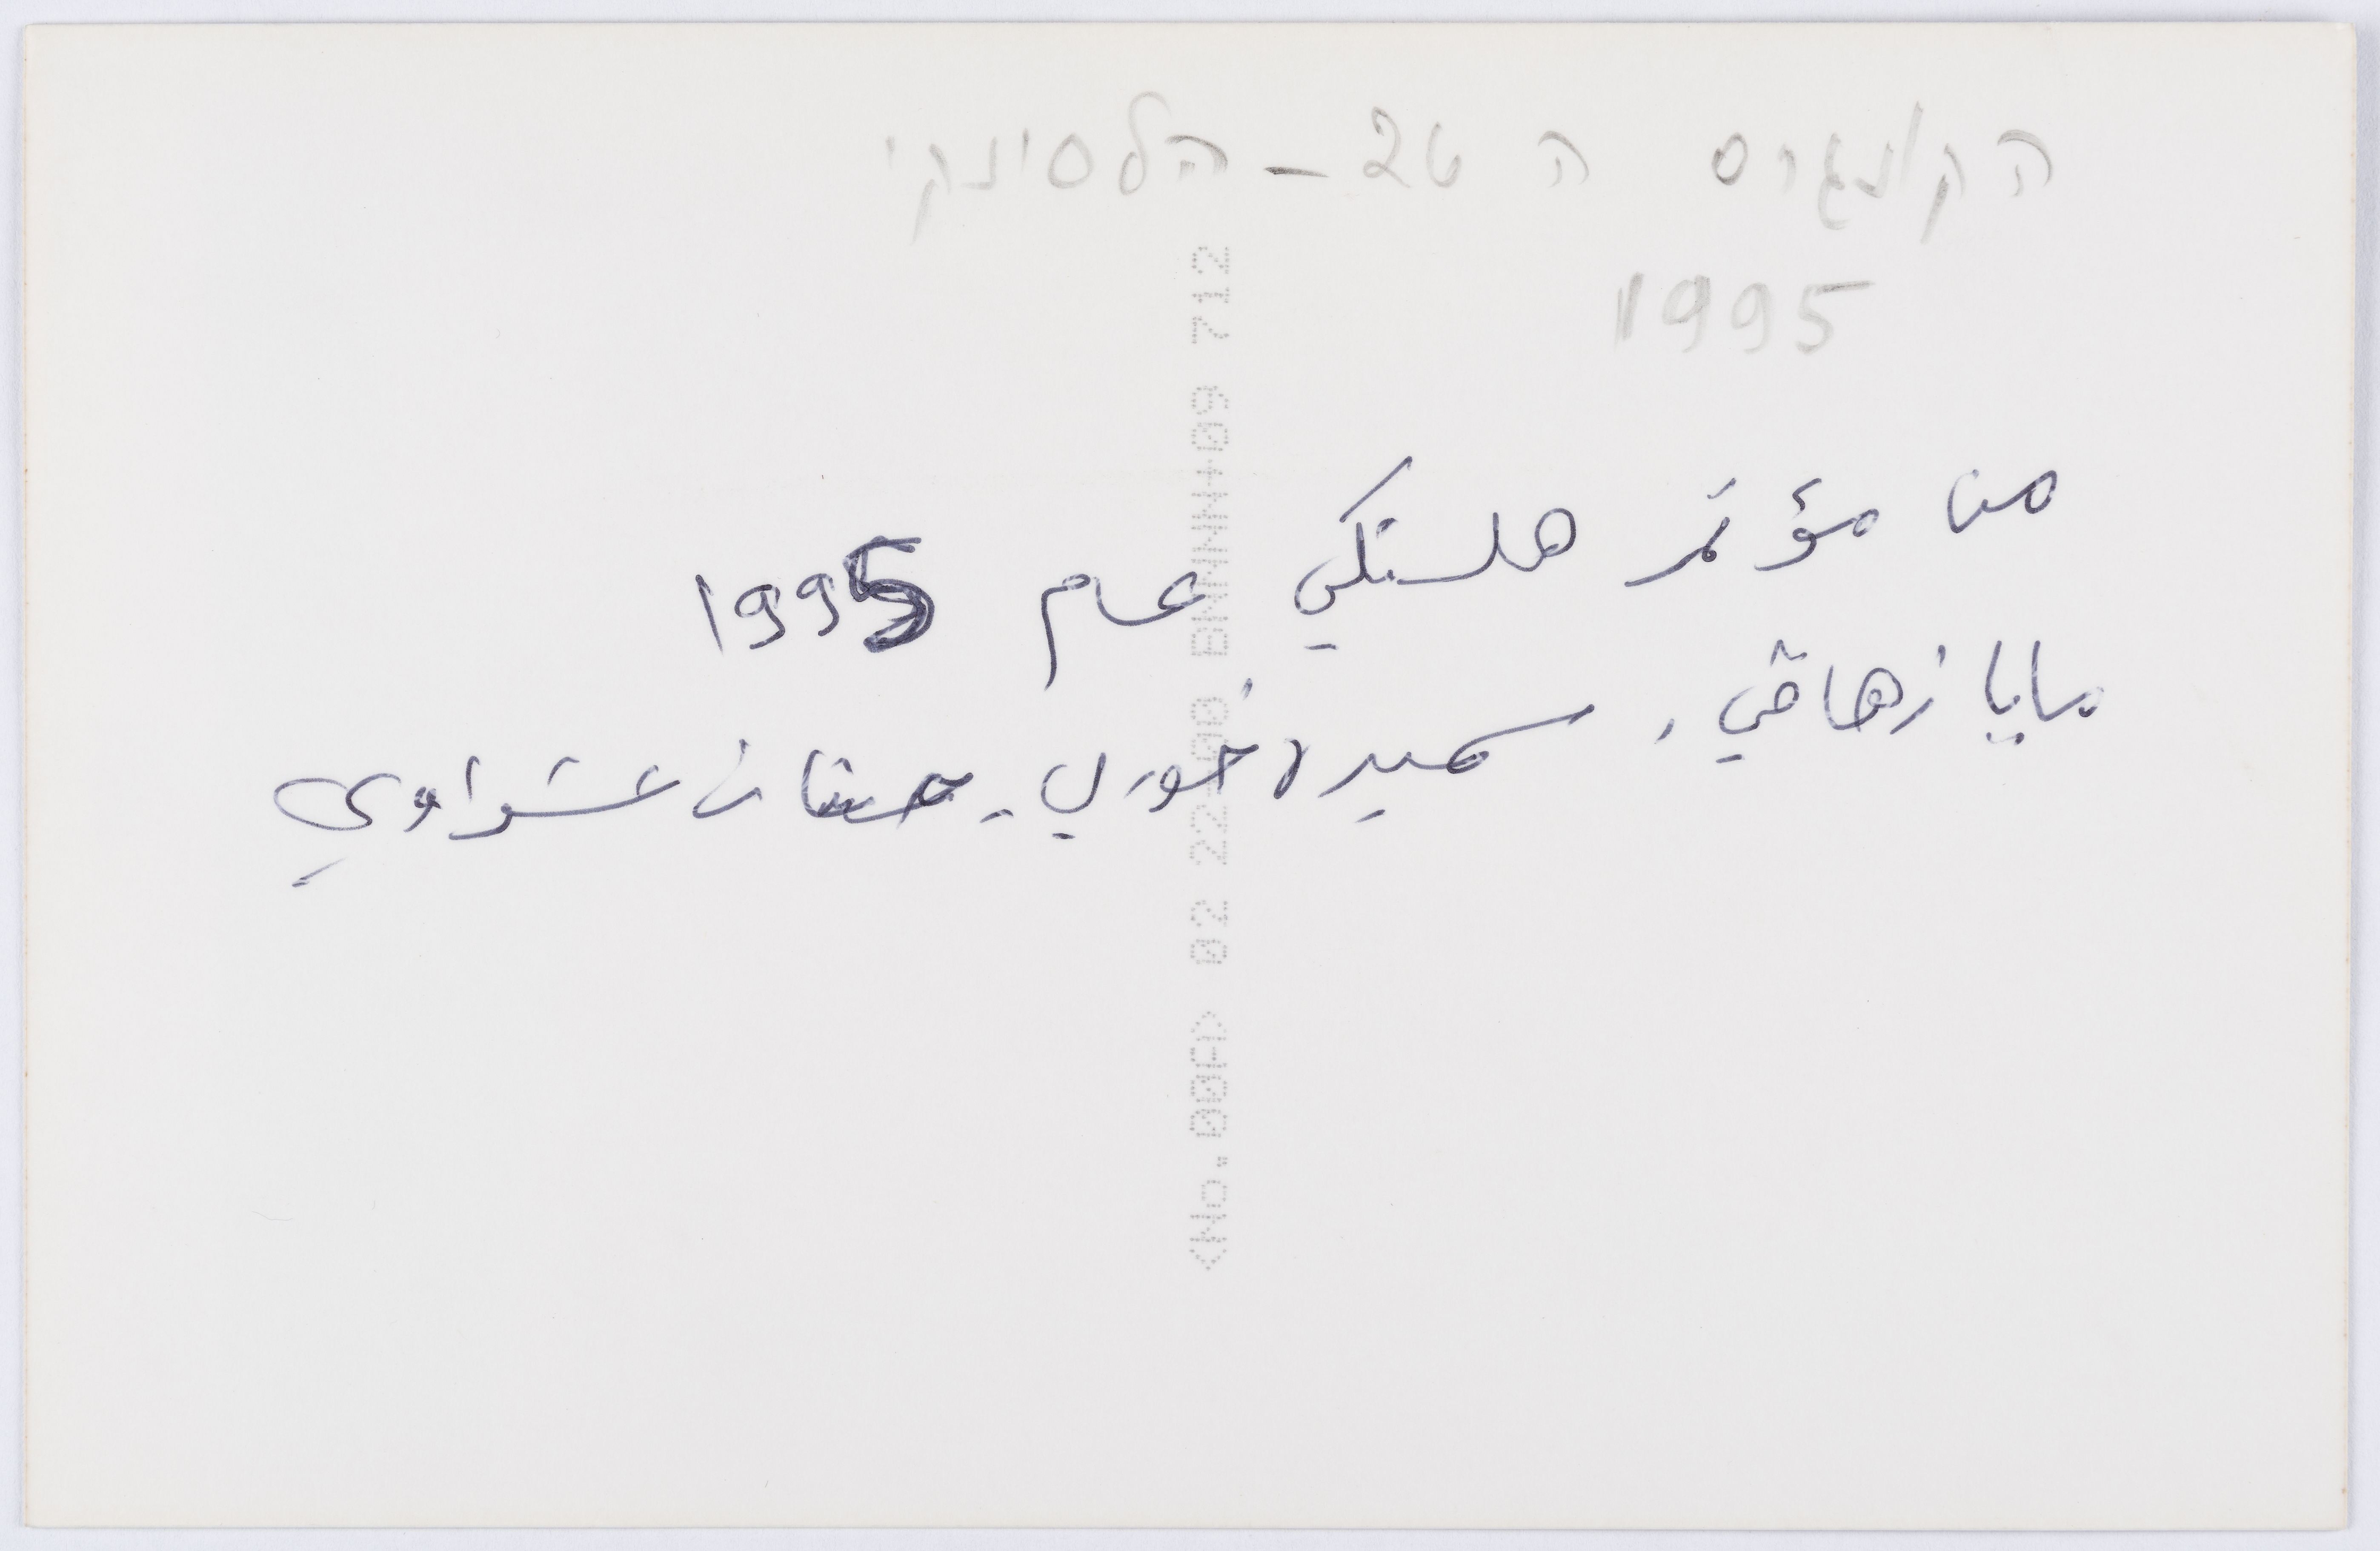 הקונגרס ה 26 - הלסינקי
1995
من مؤتمر هلسنكي عام 1995
مايا زهافي، سميرة خوري - حنان عشراوي
<No.00A> 02 22 00 BNNNN+09 712